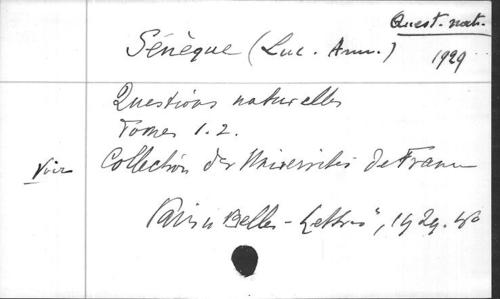 Quest. nat.
Sénèque (Luc. Ann.)
1929
Questions naturelles
Tomes 1. 2.
Voir
Collection des Universités de France
Paris "Belles-Lettres", 1929. 8°